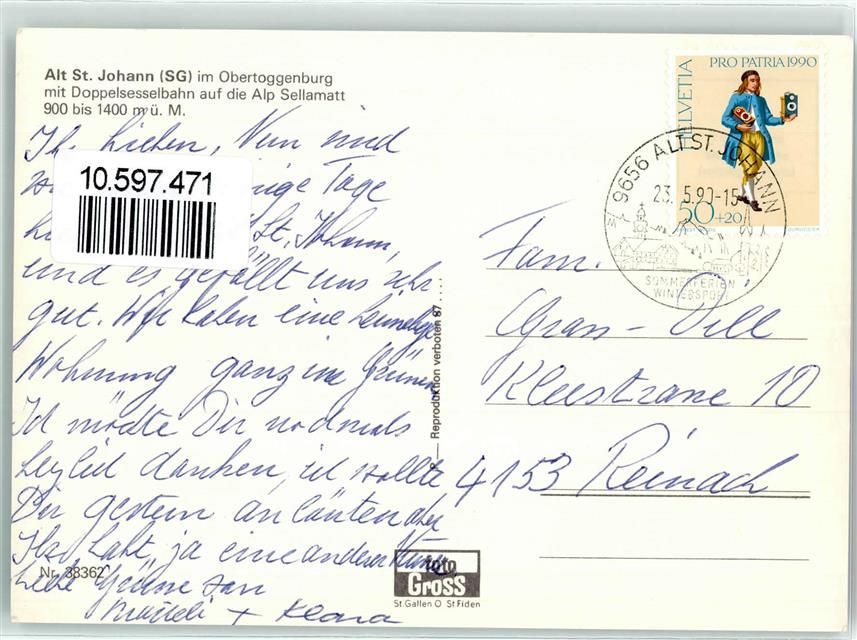 Alt St. Johann (SG) im Obertoggenburg
mit Doppelsesselbahn auf die Alp Sellamatt
900 bis 1400 m ü. M.
Ih. Lieben, Nun sind
10.597.471
Tage
St. Johann,
und es gefällt uns sehr
gut. Wir haben eine heimelige
Wohnung ganz im Grünen
Ich möchte Dir nochmals
herzlich danken, ich wollte
Dir gestern anläuten aber
Ihr habt ja eine andere Nummer
Liebe Grüsse von
+ Klara
Nr. 38362
foto
Gross
St. Gallen O St. Fiden
Reproduktion verboten 87
HELVETIA
PRO PATRIA 1990
50+20
9656 ALT ST. JOHANN
23.5.90-15
SOMMERFERIEN
WINTERSPORT
Fam.
Kleestrasse 10
4153 Reinach